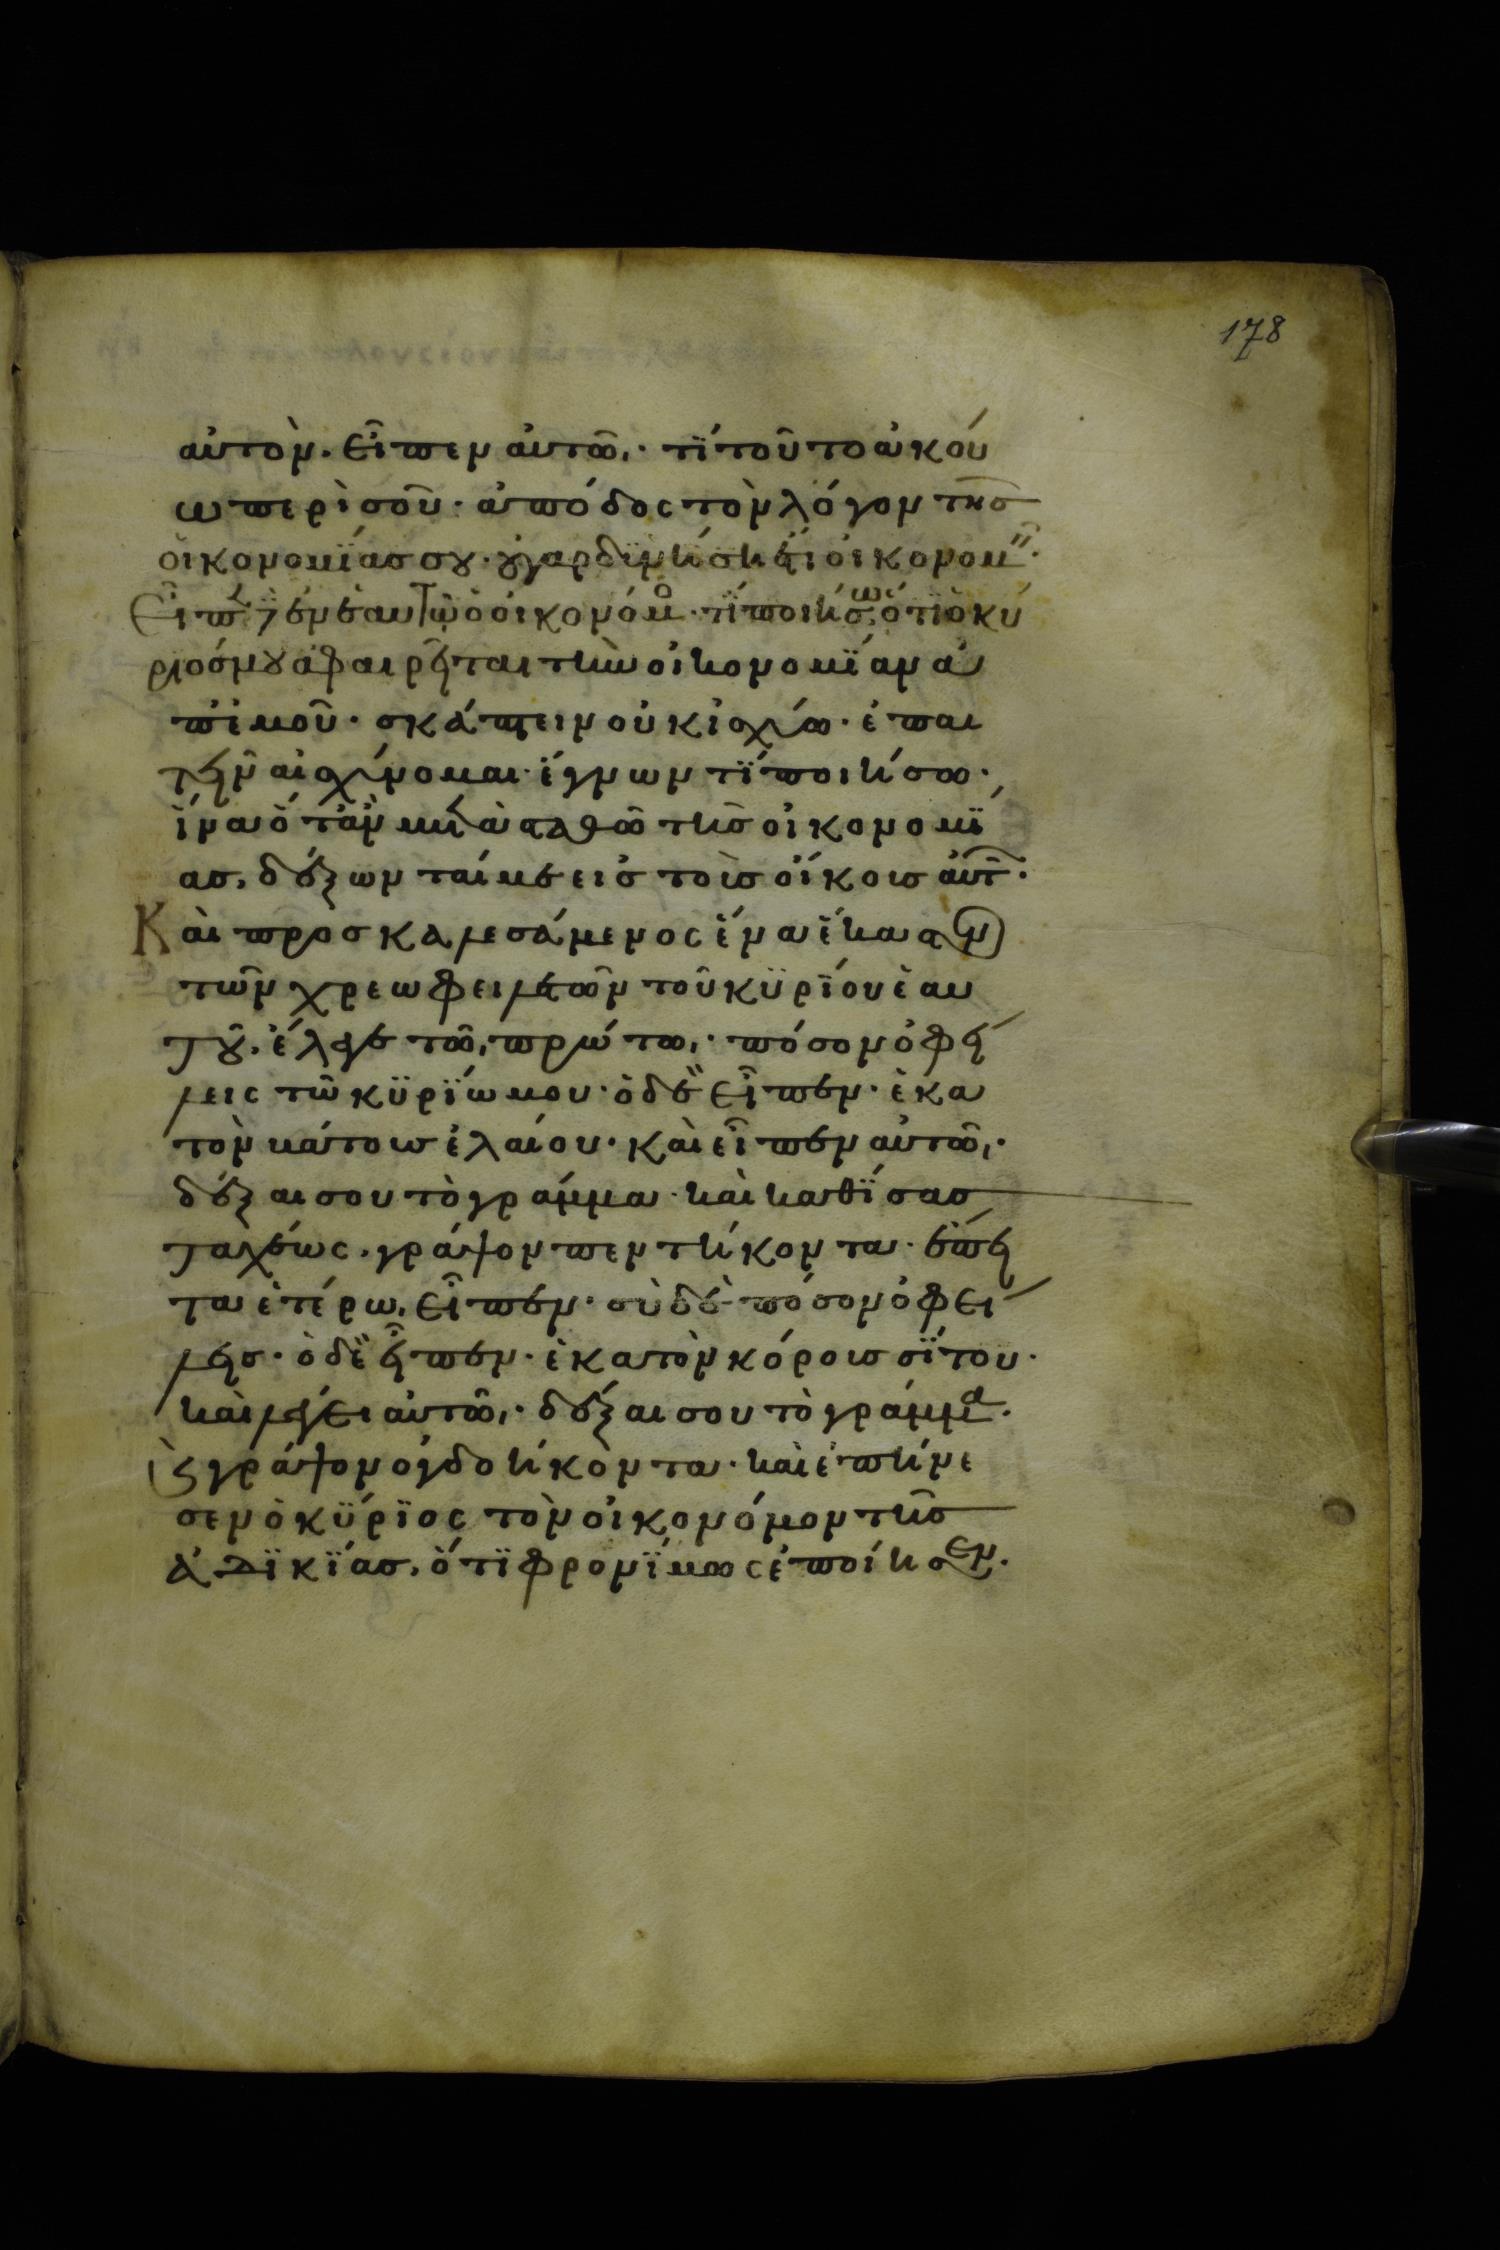 178
αὐτὸν. εἶπεν αὐτῶ,· τί τοῦτο ἀκού
ω περὶ σοῦ· ἀπόδος τὸν λόγον τῆσ
οἰκονομΐασ σου· οὐ γαρ δϊνήση ἔτι οἰκονομ"·
Εἶπε δὲ ἐν ἑαυτῶ ὁ οἰκονόμο· τί ποιήσω, ὅτι ὁ κύ
ριόσ μου ἀφαιρῆται τὴν οἰκονομΐαν ἀ
π' ἐμοῦ· σκάπτειν οὐκ ἰσχύω· ἐπαι
τῆν αἰσχύνομαι· ἔγνων τΐ ποιήσω·
ἵνα ὅταν μετασταθῶ τῆσ οἰκονομΐ
ασ, δέξωνταί με εἰσ τοὺσ οἴκουσ αὐτ·
Καὶ προσκαλεσάμενος ἕνα ἕκαστον
τῶν χρεωφειλετῶν τοῦ κϋρΐου ἑαυ
τοῦ. ἔλεγε τῶ, πρώτω,· πόσον ὀφεί
λεις τῶ κϋρΐω μου· ὁ δὲ εἶπεν· ἑκα
τὸν βάτουσ ἐλαίου· καὶ εἶπεν αὐτῶ,·
δέξαι σου τὸ γράμμα· καὶ καθΐσασ
ταχέως. γράψον πεντήκοντα· ἔπει
τα ἑτέρω, εἶπεν· σὺ δὲ πόσον ὀφεί
λεισ· ὁ δὲ εἶπεν· ἑκατὸν κόρουσ σΐτου·
καὶ λέγει αὐτῶ,· δέξαι σου τὸ γράμμα·
ϗ γράψον ὀγδοήκοντα· καὶ ἐπήνε
σεν ὁ κϋρϊος τὸν οἰκονόμον τῆσ
ἀδϊκΐασ, ὅτϊ φρονΐμως ἐποίησεν·